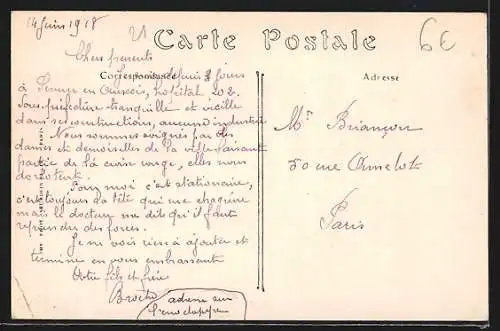 14 Juin 1918
6€
Carte Postale
Correspondance
Adresse
Chers parents
Je suis depuis 3 jours
à Semur en Auxois, hôpital 202.
Sous-préfecture tranquille et vieille
dans ses constructions, aucune industrie
Nous sommes soignés par des
dames et demoiselles de la ville faisant
partie de la croix rouge, elles nous
dorlotent.
Pour moi c'est stationaire,
c'est toujours la tête qui me chagrine
mais le docteur me dit qu'il faut
reprendre des forces.
Je ne vois rien à ajouter et
termine en vous embrassant
Votre fils et frère
adresse sur
l'enveloppe
Mr Briançon
50 rue Amelot
Paris